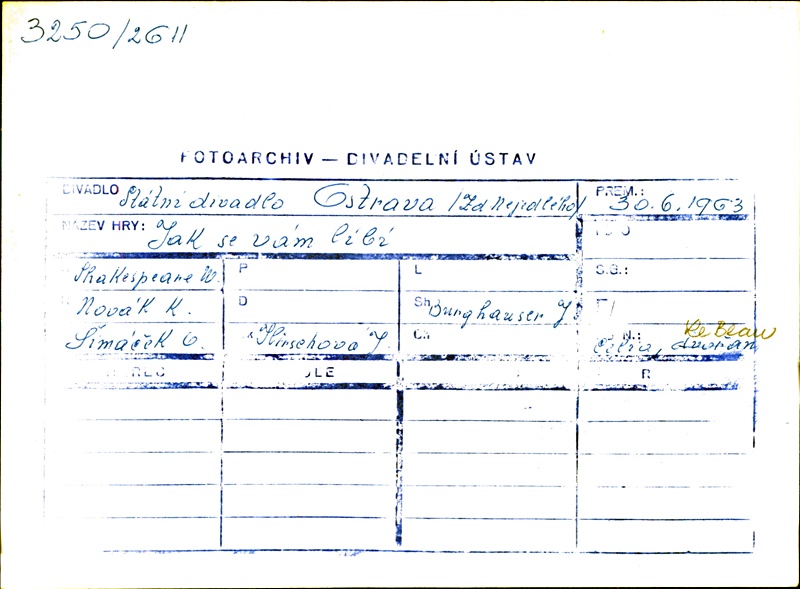 3250/2611
FOTOARCHIV — DIVADELNÍ ÚSTAV
DIVADLO Státní divadlo Ostrava /Zd Nejedlého/ PREM.: 30.6.1963
NÁZEV HRY: Jak se vám líbí
Shakespeare W. P L S.G.:
Novák K. D Sh Burghauser J
Šimáček O. K Hirschová J Ch N.: Celia, dvořan Le Beau
R